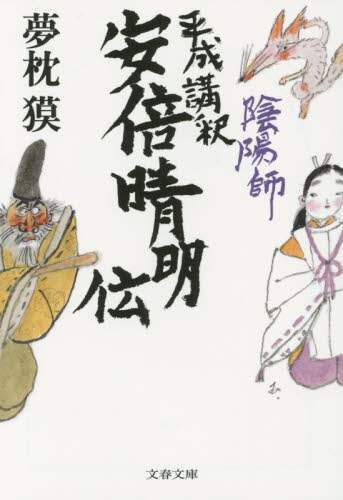 陰陽師
平成講釈
安倍晴明
伝
夢枕 獏
文春文庫